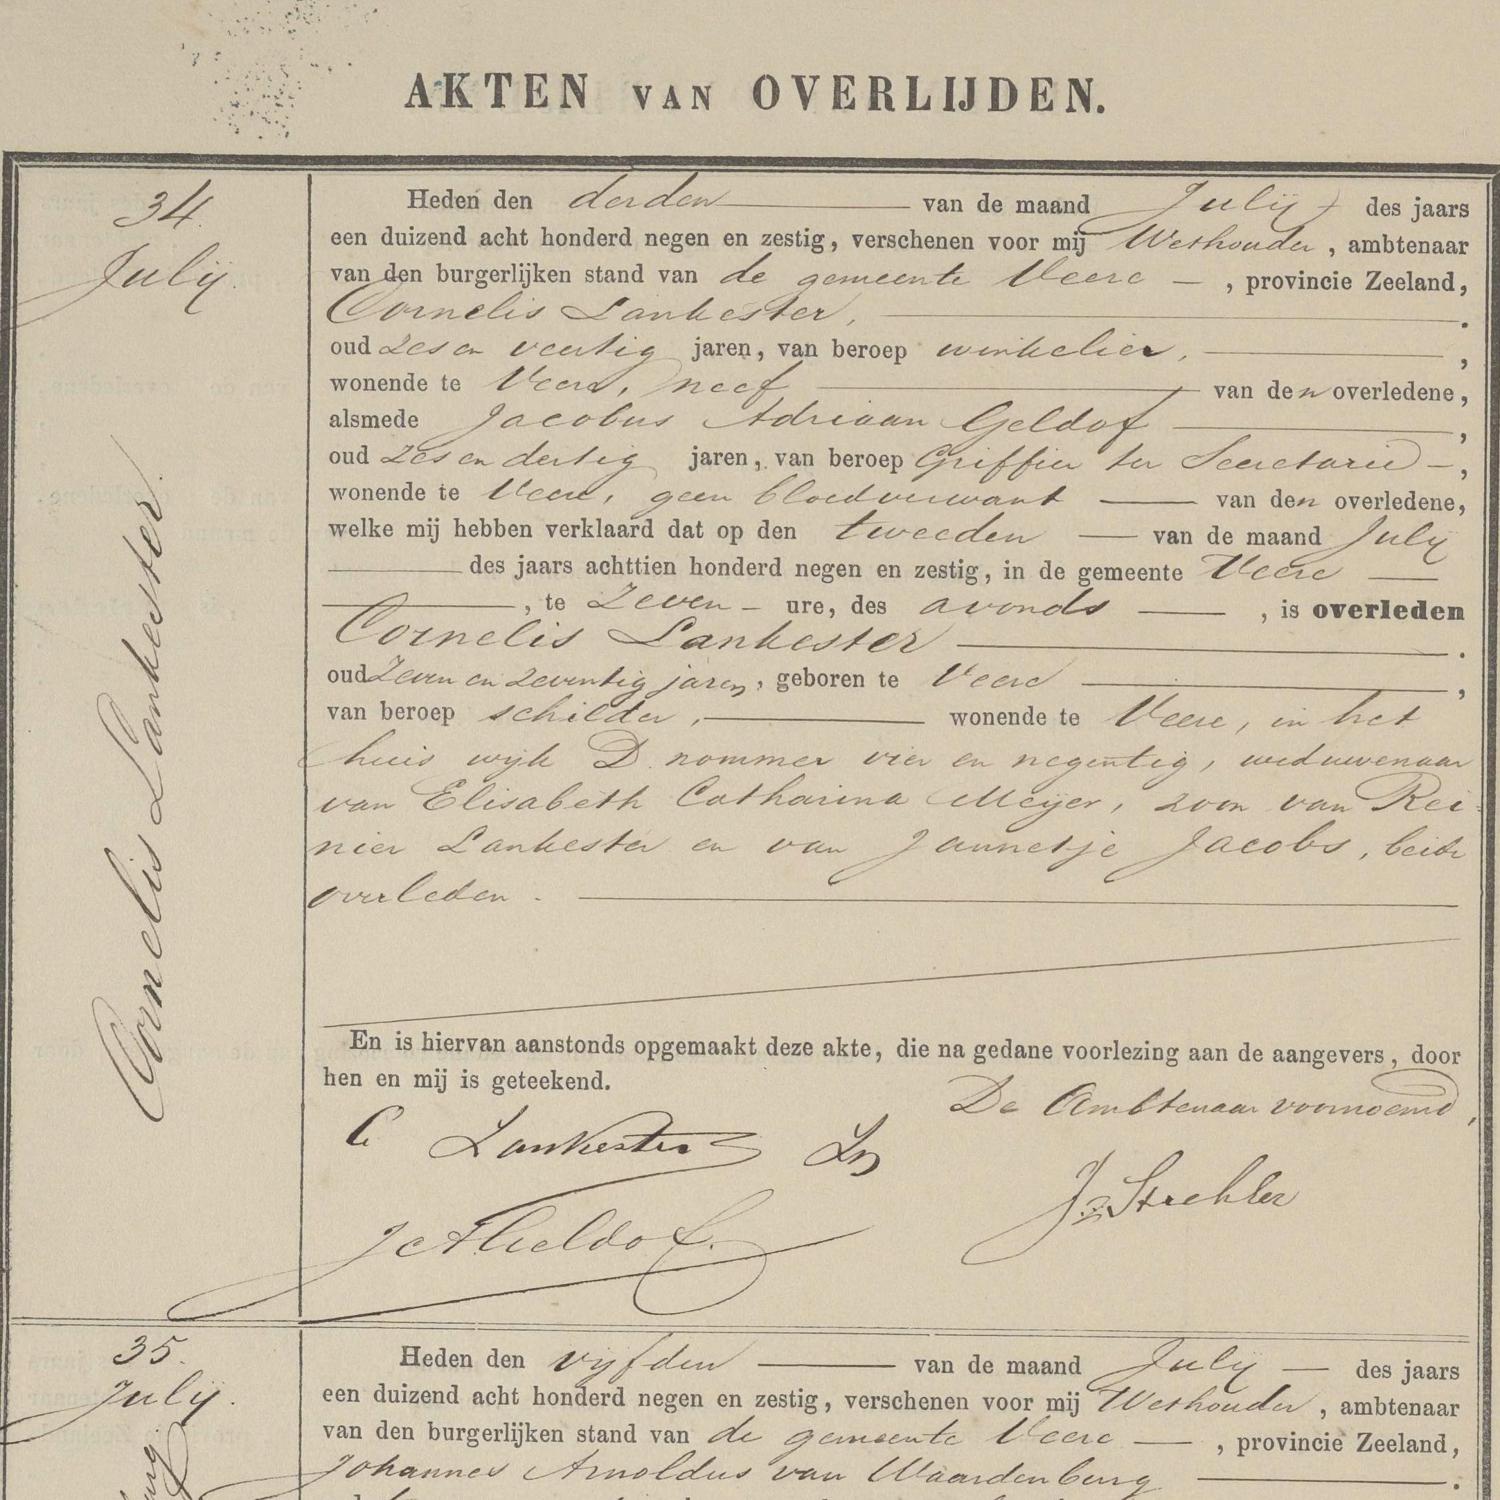 AKTEN VAN OVERLIJDEN.
34.
July.
Cornelis Lankester.
Heden den derden van de maand July des jaars
een duizend acht honderd negen en zestig, verschenen voor mij Wethouder, ambtenaar
van den burgerlijken stand van de gemeente Veere — , provincie Zeeland,
Cornelis Lankester, .
oud zes en veertig jaren, van beroep winkelier, ,
wonende te Veere, neef van den overledene,
alsmede Jacobus Adriaan Geldof ,
oud zes en dertig jaren, van beroep Griffier ter Secretarie —,
wonende te Veere, geen bloedverwant — van den overledene,
welke mij hebben verklaard dat op den tweeden — van de maand July
— des jaars achttien honderd negen en zestig, in de gemeente Veere —
—, te Zeven — ure, des avonds — , is overleden
Cornelis Lankester .
oud Zeven en zeventig jaren, geboren te Veere ,
van beroep schilder, — wonende te Veere, in het
huis wijk D. nommer vier en negentig, weduwenaar
van Elisabeth Catharina Meijer, zoon van Rei-
nier Lankester en van Jannetje Jacobs, beide
overleden.
En is hiervan aanstonds opgemaakt deze akte, die na gedane voorlezing aan de aangevers, door
hen en mij is geteekend.
De Ambtenaar voornoemd,
C Lankester
Js Strehler
JA Geldof.
35.
July.
Heden den vijfden — van de maand July — des jaars
een duizend acht honderd negen en zestig, verschenen voor mij Wethouder, ambtenaar
van den burgerlijken stand van de gemeente Veere — , provincie Zeeland,
Johannes Arnoldus van Waardenburg .